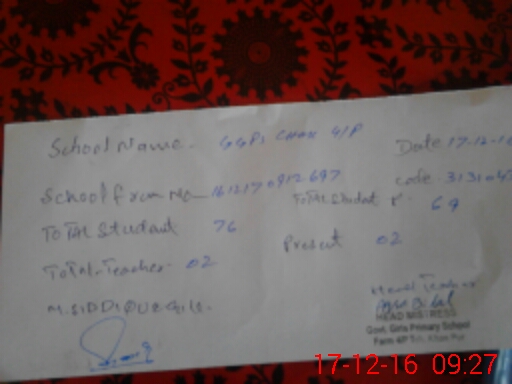 School Name - GGPS Chak 4/P Date 17-12-16
School from No 1612170912697 code 31310
Total Student 76 Total Student P. 69
Total-Teacher- 02 Present 02
M. SIDDIQUE Head Teacher
HEAD MISTRESS
Govt. Girls Primary School
Farm 4/P Teh. Khan Pur
17-12-16 09:27